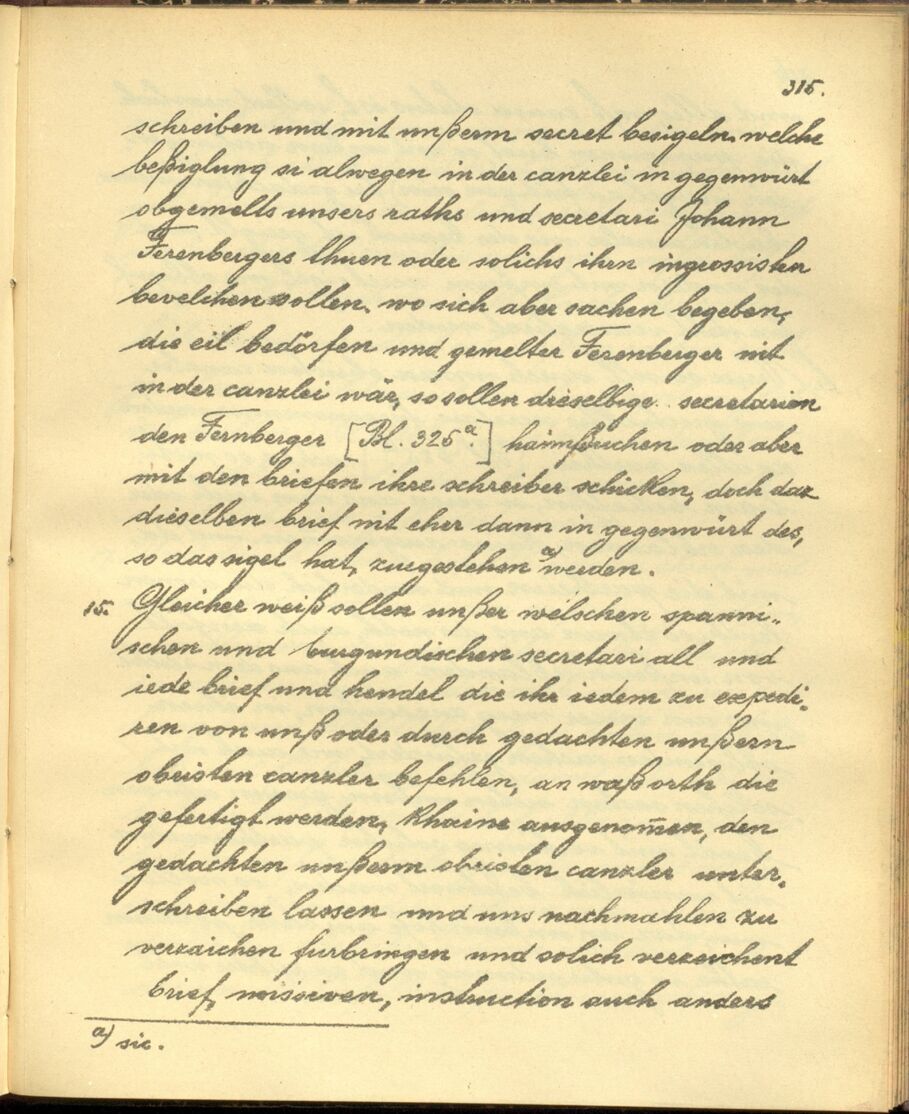 315.
schreiben und mit unßerm secret besigeln. welche
beßiglung si alwegen in der canzlei in gegenwürt
obgemelts unsers raths und secretari Johann
Ferenbergers thuen oder solichs ihrn ingrossisten
bevelchen sollen. wo sich aber sachen begeben,
die eil bedörfen und gemelter Ferenberger nit
in der canzlei wär, so sollen dieselbige secretarien
den Fernberger [Bl. 325a.] haimbsuchen oder aber
mit den briefen ihre schreiber schicken, doch daz
dieselben brief nit eher dann in gegenwürt des,
so das sigel hat, zuegestehen a) werden.
15. Gleicher weiß sollen unßer welschen spanni-
schen und burgundischen secretari all und
iede brief und hendel die ihr iedem zu expedi-
ren von unß oder durch gedachten unßern
obristen canzler befehlen, an waß orth die
gefertigt werden, khaine ausgenom̄en, den
gedachten unßerm obristen canzler unter-
schreiben lassen und uns nachmahlen zu
verzaichen furbringen und solich verzeichent
brief, missiven, instruction auch anders
a) sic.